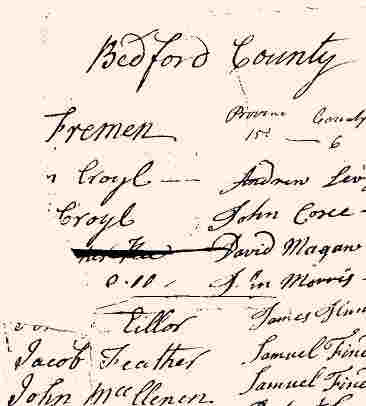 Bedford County
Fremen Provinc County
15d — 6
Croyl — Andrew Levy
Croyl John Coree
David Magaw
0.10 John Morris
Eillor James
Jacob Feather Samuel Fine
John McClenen Samuel Fine